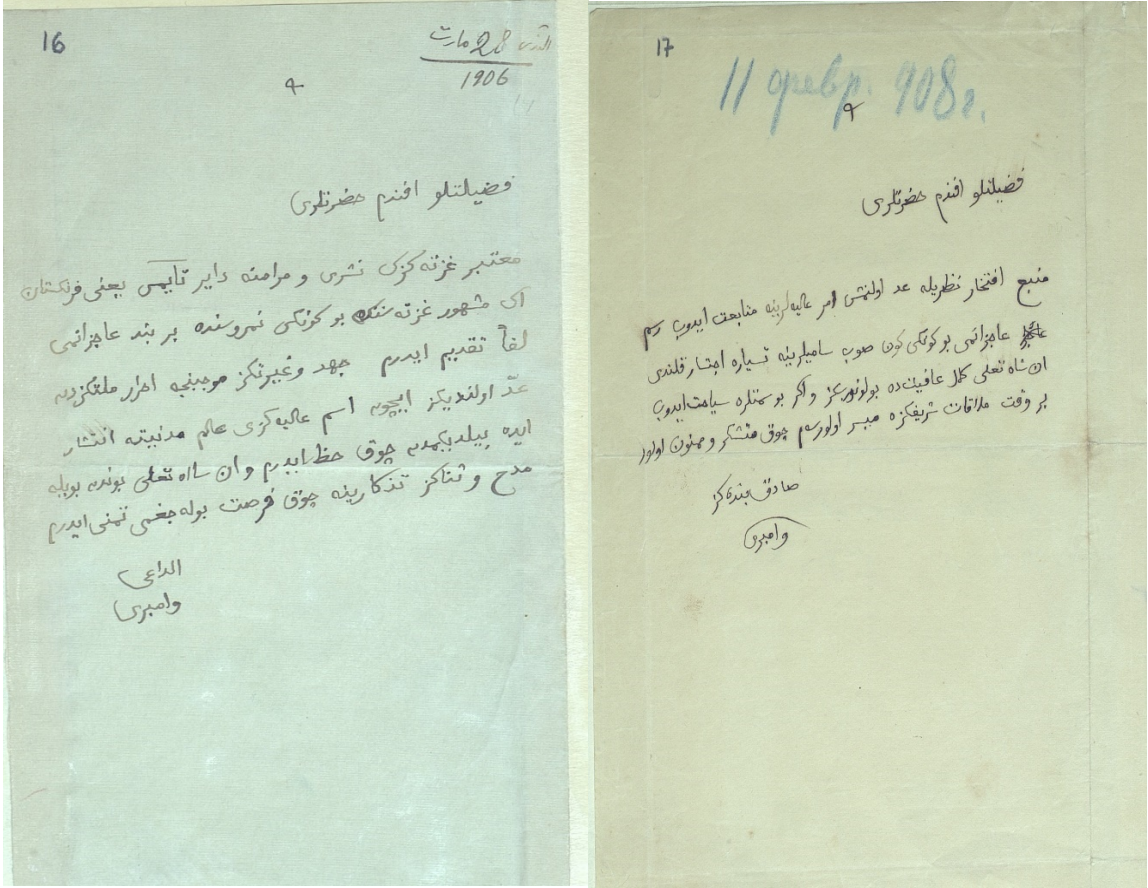 16
28 مارت
1906
فضيلتلو افندم حضرتلری
معتبر غزته كزك نشری و مرامنه داير تايمس يعنی فرنكستان
اك مشهور غزته سنك بو كونكی نمروسنده بر بند عاجزانمی
لفاً تقديم ايدرم جهد و غيرتكز موجبنجه احرار ملتكزدن
عدّ اولنديكز ايچون اسم عاليه كزی عالم مدنيتده انتشار
ايده بيلديكمدن چوق حظ ايدرم و ان شااه تعلی بوندن بويله
مدح و ثناكز تذكارينه چوق فرصت بوله جغمی تمنی ايدرم
الداعی
وامبری
17
11 февр. 908 г.
فضيلتلو افندم حضرتلری
منبع افتخار نظريله عد اولنمش امر عاليه لرينه متابعت ايدوب رسم
عاجزانمی بو كونكی كون صوب ساميلرينه تسياره اجتسار قلندی
ان شاه تعلی كمال عافيت ده بولونورسكز و اكر بو سمتلره سياحت ايدوب
بر وقت ملاقات شريفكزه ميسر اولورسم چوق متشكر و ممنون اولور
صادق بنده كز
وامبری